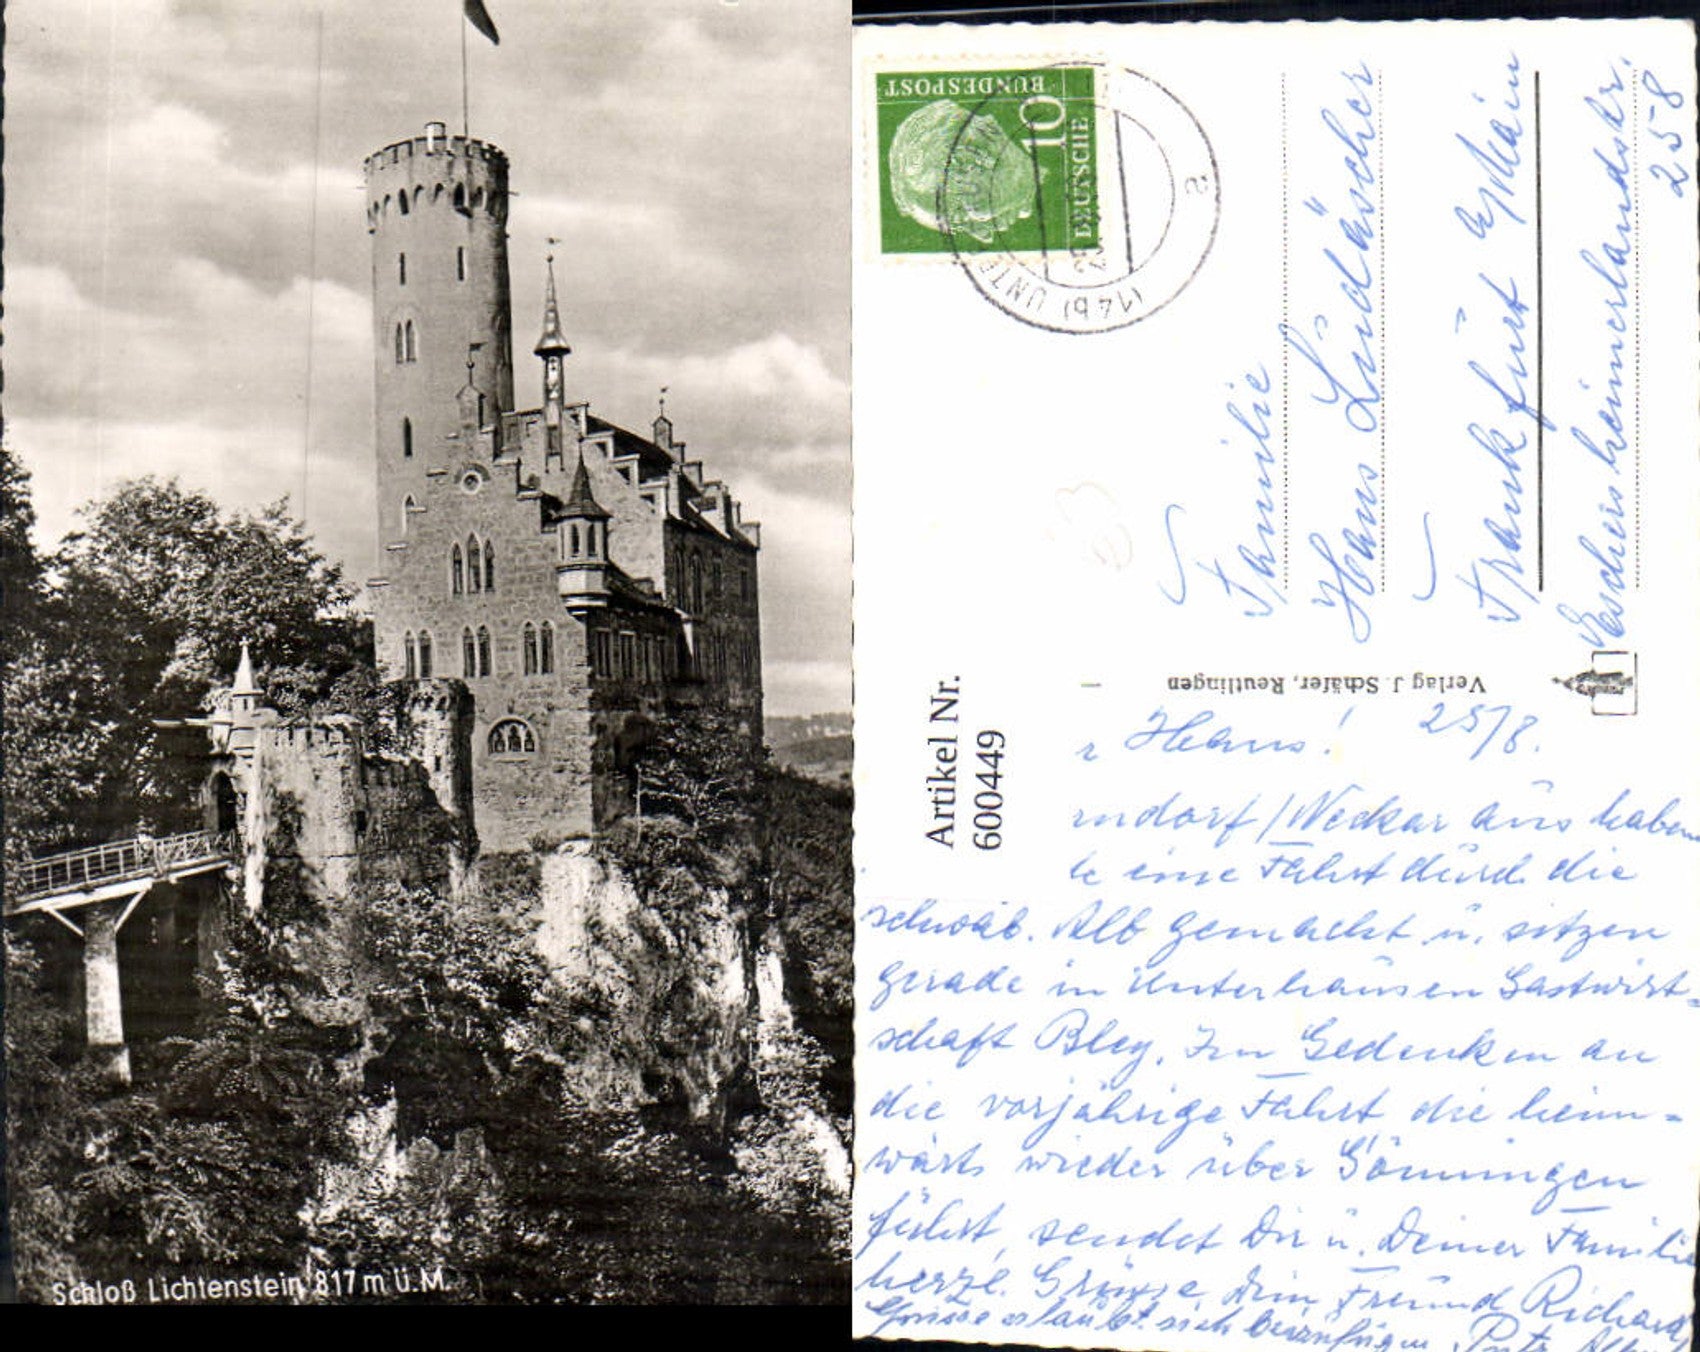 Schloß Lichtenstein 817 m ü.M.
DEUTSCHE
BUNDESPOST
10
(14b) UNTER
2
Familie
Hans Lindäscher
Frankfurt a/Main
Eschersheimerlandstr.
258
Verlag J. Schäfer, Reutlingen
Artikel Nr.
600449
Hans! 25/8.
ndorf/Neckar aus haben
eine Fahrt durch die
schwäb. Alb gemacht u. sitzen
gerade in Unterhausen Gastwirt=
schaft Bley. Im Gedenken an
die vorjährige Fahrt, die heim=
wärts wieder über Gönningen
führt, sendet Dir u. Deiner Familie
herzl. Grüsse Dein Freund Richard
Grüsse erlaubt sich beizufügen